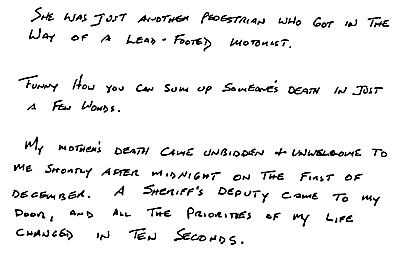 She was just another pedestrian who got in the
way of a lead-footed motorist.
Funny how you can sum up someone's death in just
a few words.
My mother's death came unbidden + unwelcome to
me shortly after midnight on the first of
December. A Sheriff's deputy came to my
door, and all the priorities of my life
changed in ten seconds.